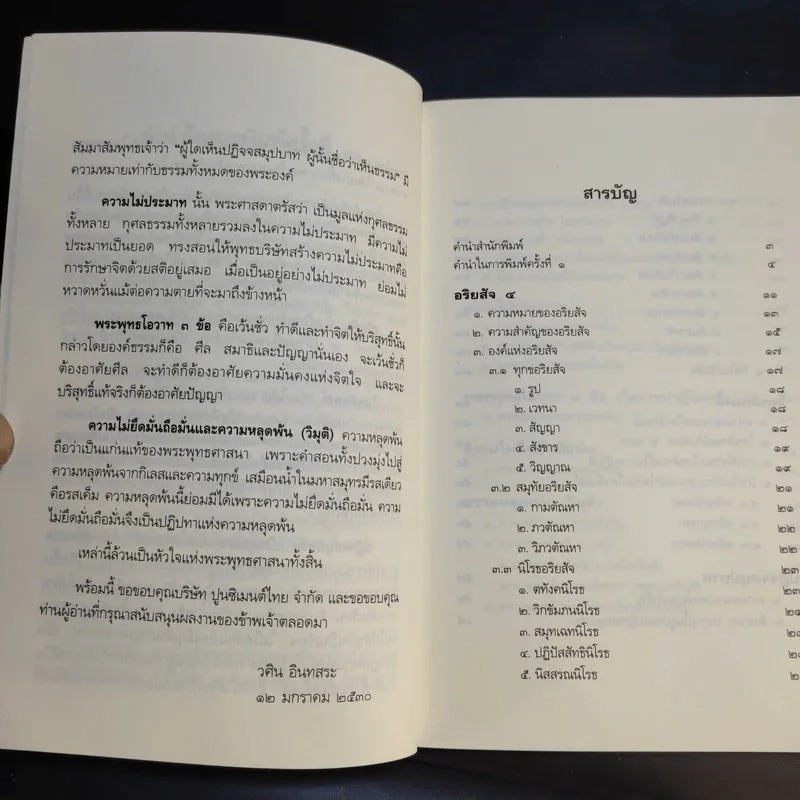 สัมมาสัมพุทธเจ้าว่า "ผู้ใดเห็นปฏิจจสมุปบาท ผู้นั้นชื่อว่าเห็นธรรม" มี
ความหมายเท่ากับธรรมทั้งหมดของพระองค์
ความไม่ประมาท นั้น พระศาสดาตรัสว่า เป็นมูลแห่งกุศลธรรม
ทั้งหลาย กุศลธรรมทั้งหลายรวมลงในความไม่ประมาท มีความไม่
ประมาทเป็นยอด ทรงสอนให้พุทธบริษัทสร้างความไม่ประมาทคือ
การรักษาจิตด้วยสติอยู่เสมอ เมื่อเป็นอยู่อย่างไม่ประมาท ย่อมไม่
หวาดหวั่นแม้ต่อความตายที่จะมาถึงข้างหน้า
พระพุทธโอวาท ๓ ข้อ คือเว้นชั่ว ทำดีและทำจิตให้บริสุทธิ์นั้น
กล่าวโดยองค์ธรรมก็คือ ศีล สมาธิและปัญญานั่นเอง จะเว้นชั่วก็
ต้องอาศัยศีล จะทำดีก็ต้องอาศัยความมั่นคงแห่งจิตใจ และจะ
บริสุทธิ์แท้จริงก็ต้องอาศัยปัญญา
ความไม่ยึดมั่นถือมั่นและความหลุดพ้น (วิมุติ) ความหลุดพ้น
ถือว่าเป็นแก่นแท้ของพระพุทธศาสนา เพราะคำสอนทั้งปวงมุ่งไปสู่
ความหลุดพ้นจากกิเลสและความทุกข์ เสมือนน้ำในมหาสมุทรมีรสเดียว
คือรสเค็ม ความหลุดพ้นนี้ย่อมมีได้เพราะความไม่ยึดมั่นถือมั่น ความ
ไม่ยึดมั่นถือมั่นจึงเป็นปฏิปทาแห่งความหลุดพ้น
เหล่านี้ล้วนเป็นหัวใจแห่งพระพุทธศาสนาทั้งสิ้น
พร้อมนี้ ขอขอบคุณบริษัท ปูนซิเมนต์ไทย จำกัด และขอขอบคุณ
ท่านผู้อ่านที่กรุณาสนับสนุนผลงานของข้าพเจ้าตลอดมา
วศิน อินทสระ
๑๒ มกราคม ๒๕๓๐
สารบัญ
คำนำสำนักพิมพ์ ๓
คำนำในการพิมพ์ครั้งที่ ๑ ๔
อริยสัจ ๔ ๑๑
๑. ความหมายของอริยสัจ ๑๓
๒. ความสำคัญของอริยสัจ ๑๕
๓. องค์แห่งอริยสัจ ๑๗
๓.๑ ทุกขอริยสัจ ๑๗
๑. รูป ๑๘
๒. เวทนา ๑๘
๓. สัญญา ๑๘
๔. สังขาร ๑๙
๕. วิญญาณ ๑๙
๓.๒ สมุทัยอริยสัจ ๒๑
๑. กามตัณหา ๒๑
๒. ภวตัณหา ๒๒
๓. วิภวตัณหา ๒๒
๓.๓ นิโรธอริยสัจ ๒๓
๑. ตทังคนิโรธ ๒๓
๒. วิกขัมภนนิโรธ
๓. สมุทเฉทนิโรธ
๔. ปฏิปัสสัทธินิโรธ
๕. นิสสรณนิโรธ